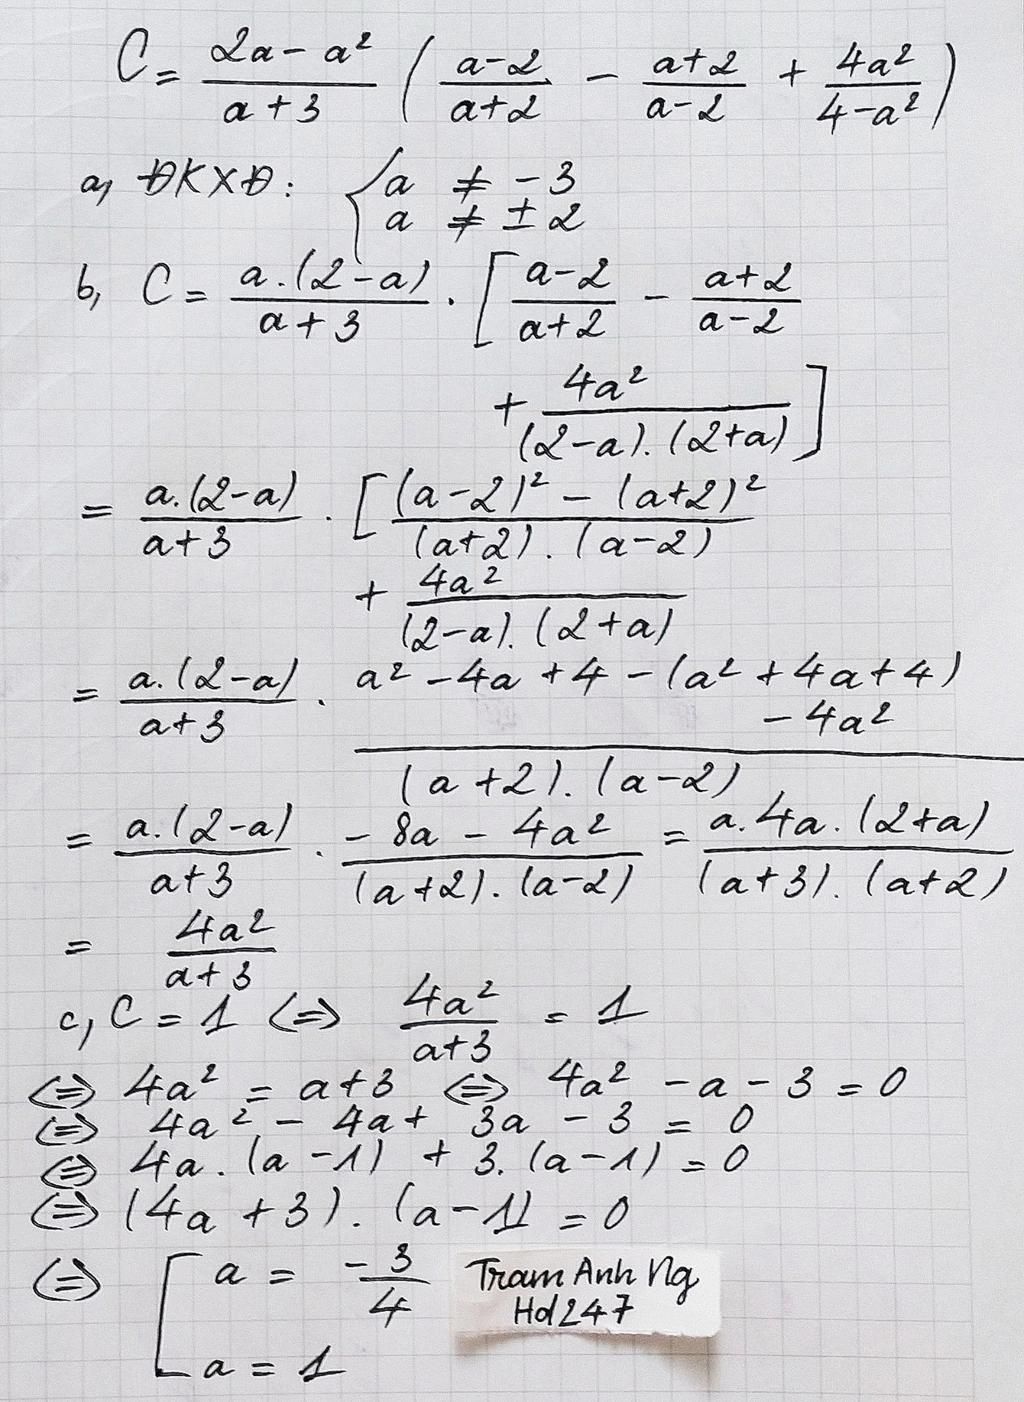 C = (2a - a²)/(a + 3) ( (a-2)/(a+2) - (a+2)/(a-2) + 4a²/(4-a²) )
a, ĐKXĐ: { a ≠ -3
a ≠ ± 2
b, C = a.(2-a)/(a+3) . [ (a-2)/(a+2) - (a+2)/(a-2)
+ 4a²/((2-a).(2+a)) ]
= a.(2-a)/(a+3) . [ ((a-2)² - (a+2)²)/((a+2).(a-2))
+ 4a²/((2-a).(2+a))
= a.(2-a)/(a+3) . (a² - 4a + 4 - (a² + 4a + 4)
- 4a²)/((a+2).(a-2))
= a.(2-a)/(a+3) . (-8a - 4a²)/((a+2).(a-2)) = a.4a.(2+a)/((a+3).(a+2))
= 4a²/(a+3)
c, C = 1 <=> 4a²/(a+3) = 1
<=> 4a² = a+3 <=> 4a² - a - 3 = 0
<=> 4a² - 4a + 3a - 3 = 0
<=> 4a.(a-1) + 3.(a-1) = 0
<=> (4a+3).(a-1) = 0
<=> [ a = -3/4
a = 1
Tram Anh Ng
Hd247